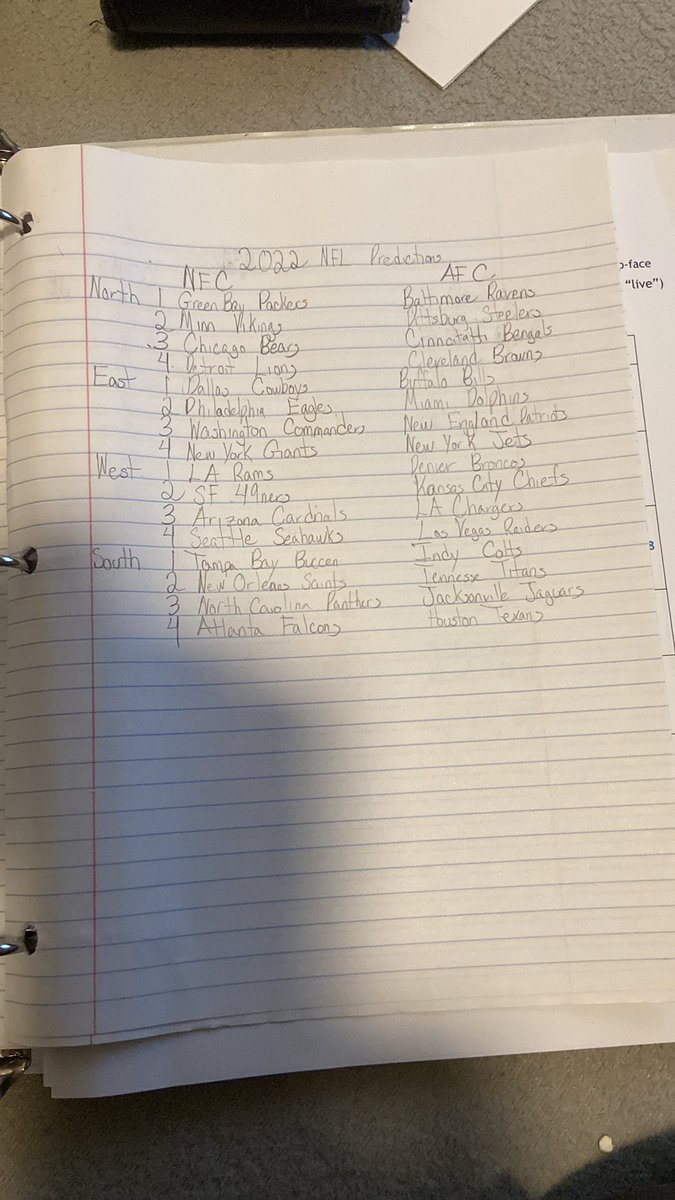 2022 NFL Predictions
NFC AFC
North 1 Green Bay Packers Baltimore Ravens
2 Minn Vikings Pittsburg Steelers
3 Chicago Bears Cinncitatti Bengals
4 Detroit Lions Cleveland Browns
East 1 Dallas Cowboys Buffalo Bills
2 Philadelphia Eagles Miami Dolphins
3 Washington Commanders New England Patriots
4 New York Giants New York Jets
West 1 LA Rams Denver Broncos
2 SF 49ners Kansas City Chiefs
3 Arizona Cardinals LA Chargers
4 Seattle Seahawks Las Vegas Raiders
South 1 Tampa Bay Buccen Indy Colts
2 New Orleans Saints Tennesse Titans
3 North Carolina Panthers Jacksonville Jaguars
4 Atlanta Falcons Houston Texans
o-face
"live")
3